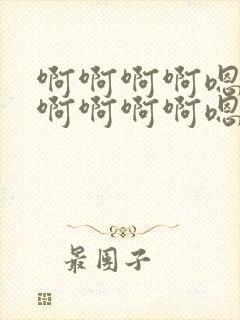 啊啊啊啊嗯
啊啊啊啊嗯
最团子